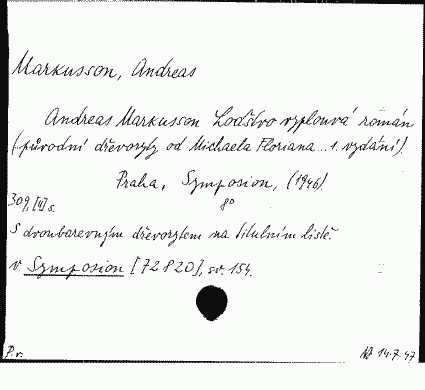 Markusson, Andreas
Andreas Markusson Loďstvo vyplouvá román
(původní dřevoryty od Michaela Floriana... 1. vydání).
Praha, Symposion, (1946).
8°
309, [II] s.
S dvoubarevným dřevorytem na titulním listě.
v. Symposion [72820], sv. 154.
P.v. 14.7.47